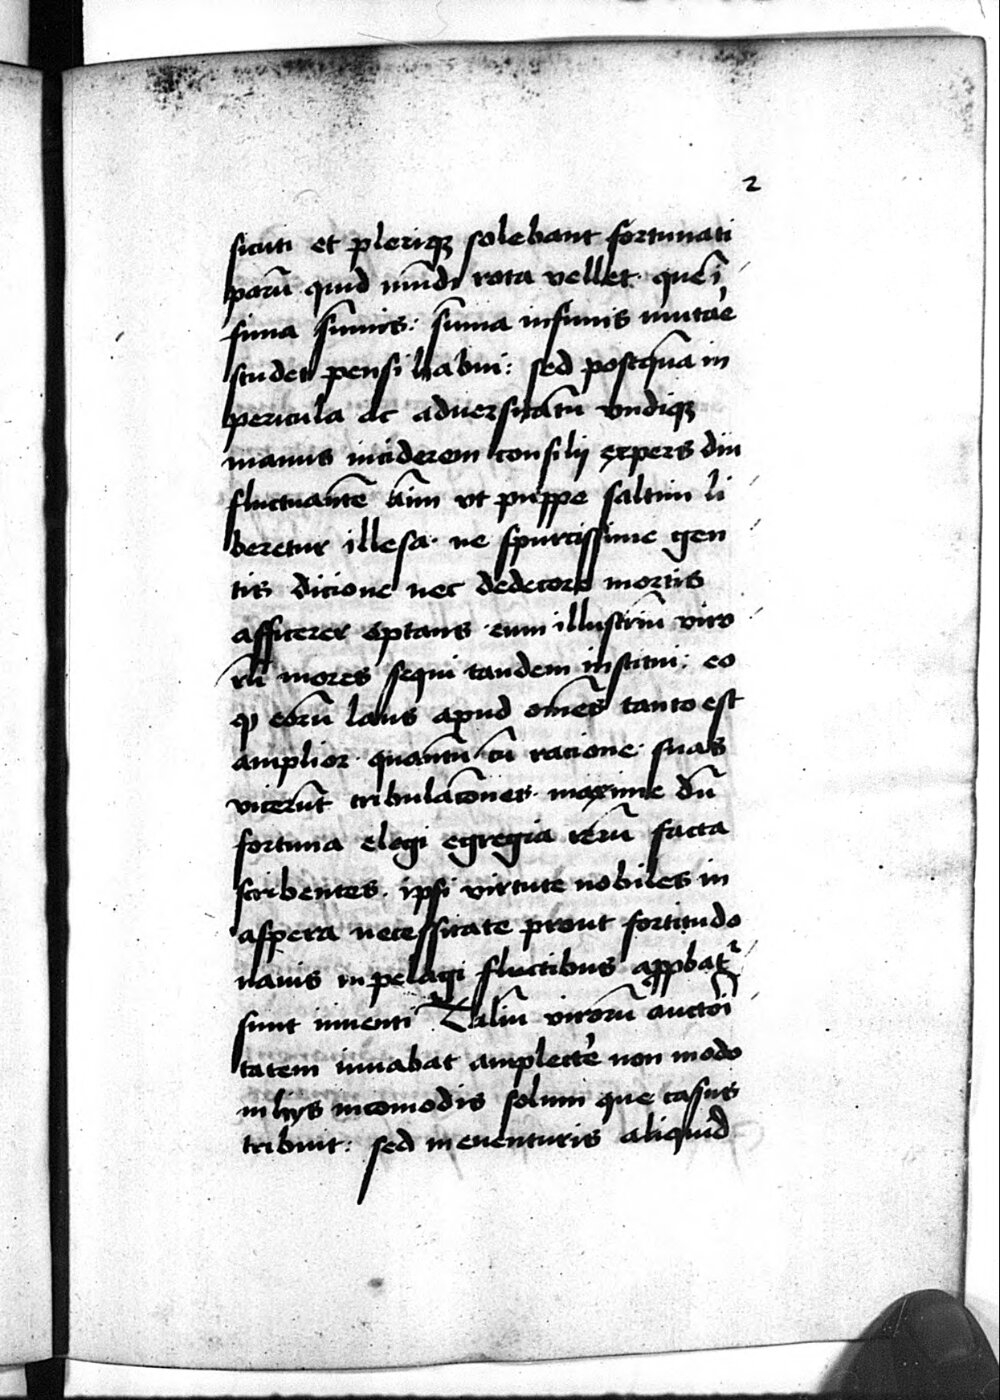 2
sicuti et pleriqꝫ solebant fortunati
parū quid mūdi rota vellet · que ī
fima sūmis : sūma infimis mutar̄e
studet pensi habui : sed postqūa in
pericula ac aduersitātū vndiqꝫ
manus inciderem consilij expers diu
fluctuantē vt puppe saltim li
beretur illesa · ne spurcissime gen
tis dicione nec dedecore mortis
afficerer optans · eum illustriū viro
rū mores sequi tandem institui : eo
ꝙ eorū laus apud omēs tanto est
amplior · quantū cū racione · suas
vicerūt tribulacōnes · maxime dū
fortuna elegi egregia rerū facta
scribentes · ipsi virtute nobiles in
aspera necessitate prout fortitudo
nauis in pelagi fluctibus appbatᷣ
sunt inuenti Taliū virorū auctōi
tatem iuuabat amplectē non modo
in hijs incomodis solum que casus
tribuit : sed in euenturis aliquid